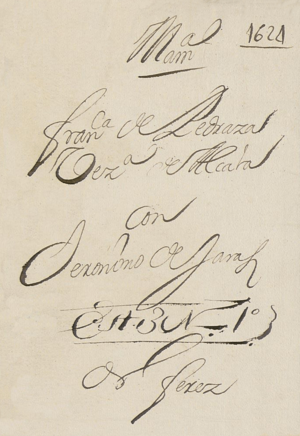 Mam.al 1621
Fran.ca de Pedraza
Vez.a de Alcala
con
Jeronimo de
Est. 3 N. 1º
de Jerez